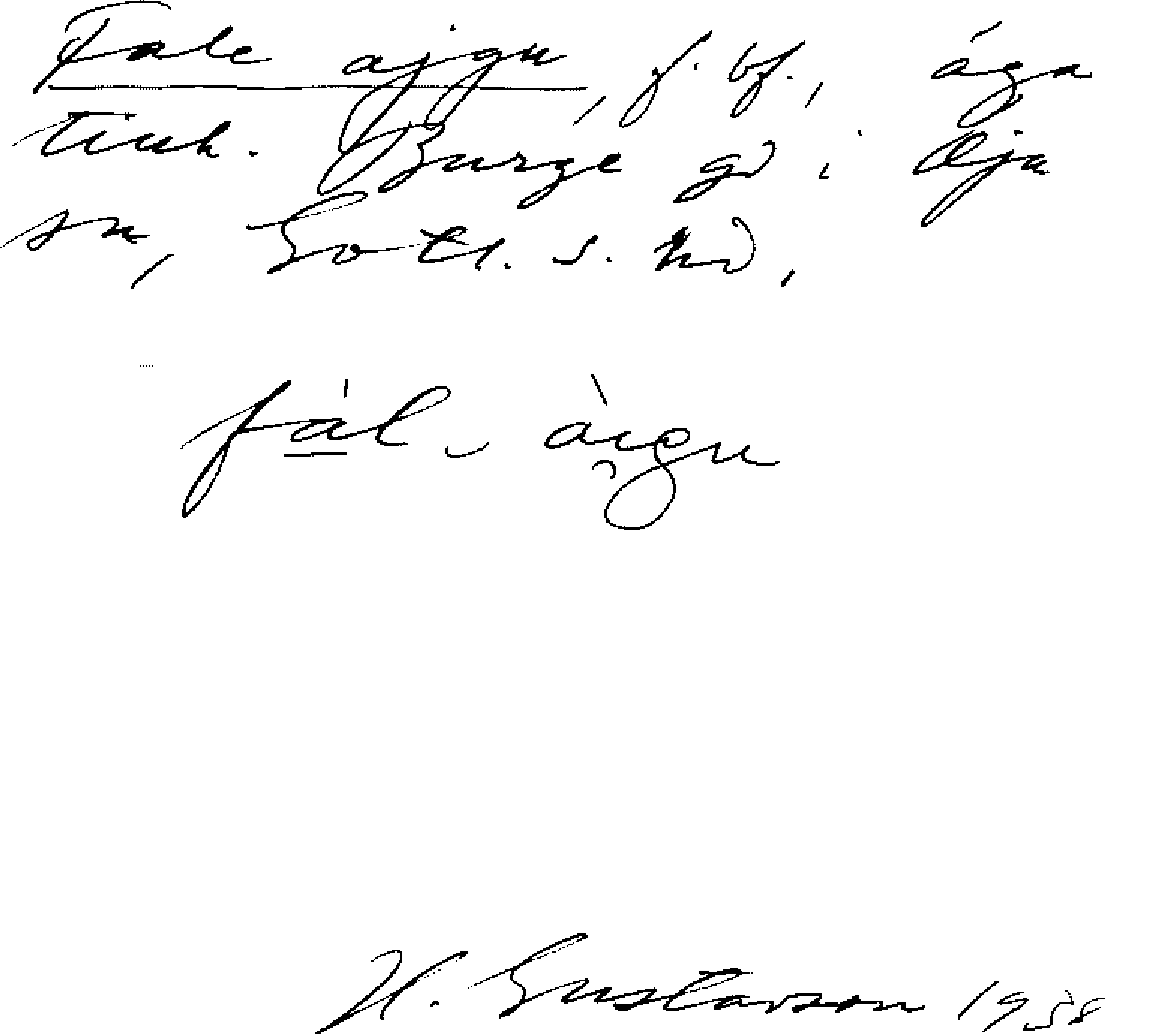 Fale ajgu, f. bf., äga
tillh. Burge gd i Öja
sn, Gotl. s. hd,
fàl ajgu
H. Gustavson 1938